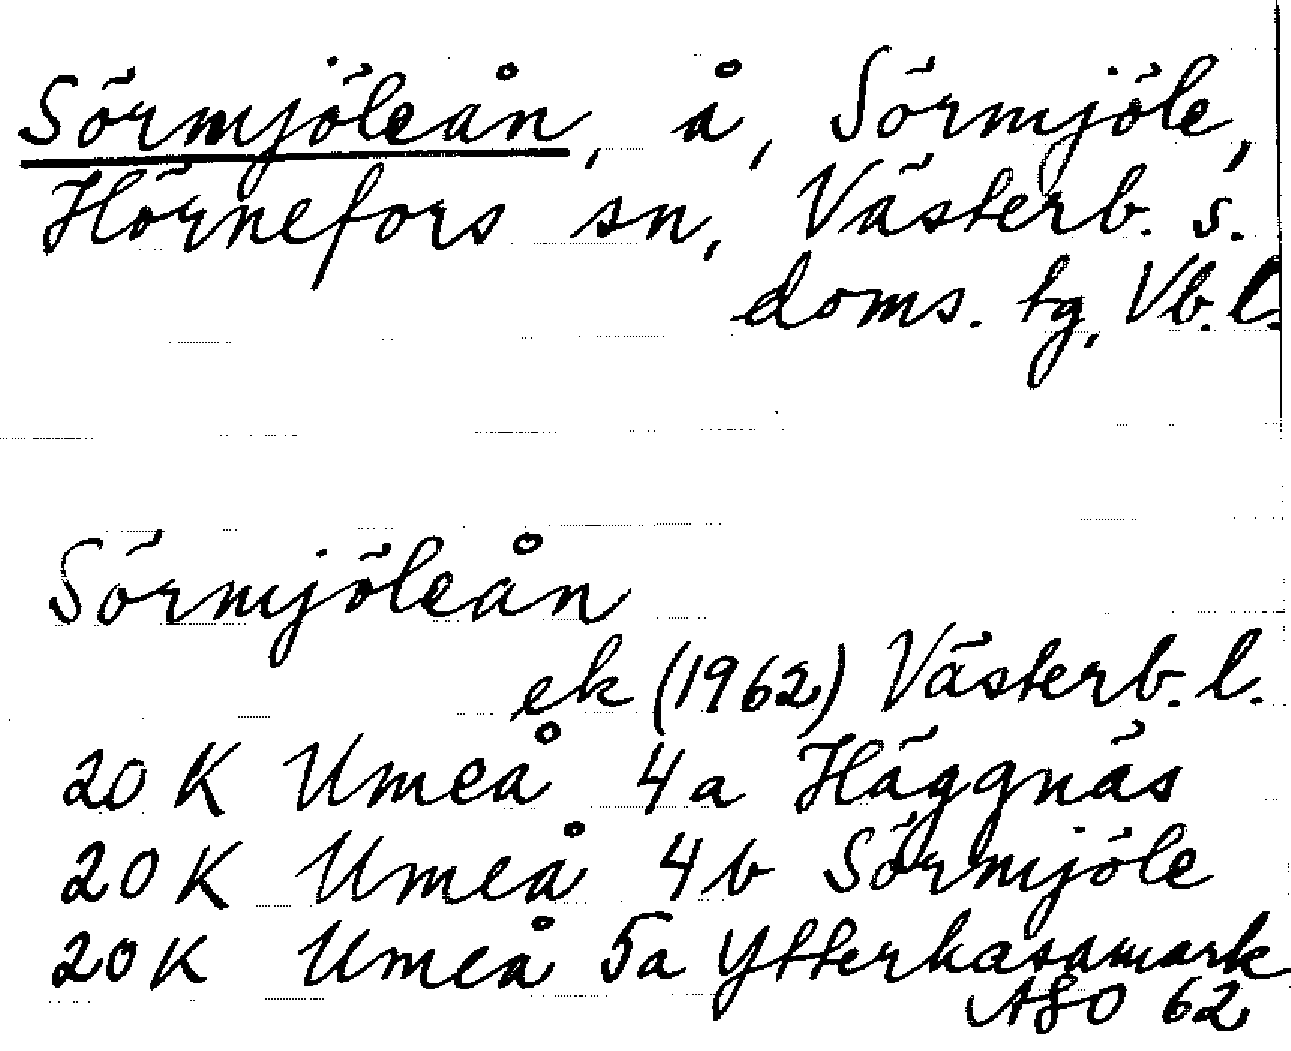 Sörmjöleån, å, Sörmjöle,
Hörnefors sn, Västerb. s.
doms. tg, Vb. l.
Sörmjöleån
ek (1962) Västerb. l.
20 K Umeå 4a Häggnäs
20 K Umeå 4b Sörmjöle
20 K Umeå 5a Ytterkasamark
ASO 62